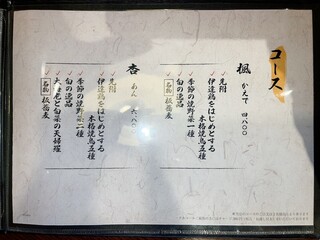 コース
楓 かえで 四八〇〇
先附
伊達鶏をはじめとする
本格焼鳥五種
季節の焼野菜一種
旬の逸品
名物 板蕎麦
杏 あん 六八〇〇
先附
伊達鶏をはじめとする
本格焼鳥五種
季節の焼野菜二種
旬の逸品
大海老と旬菜の天婦羅
名物 板蕎麦